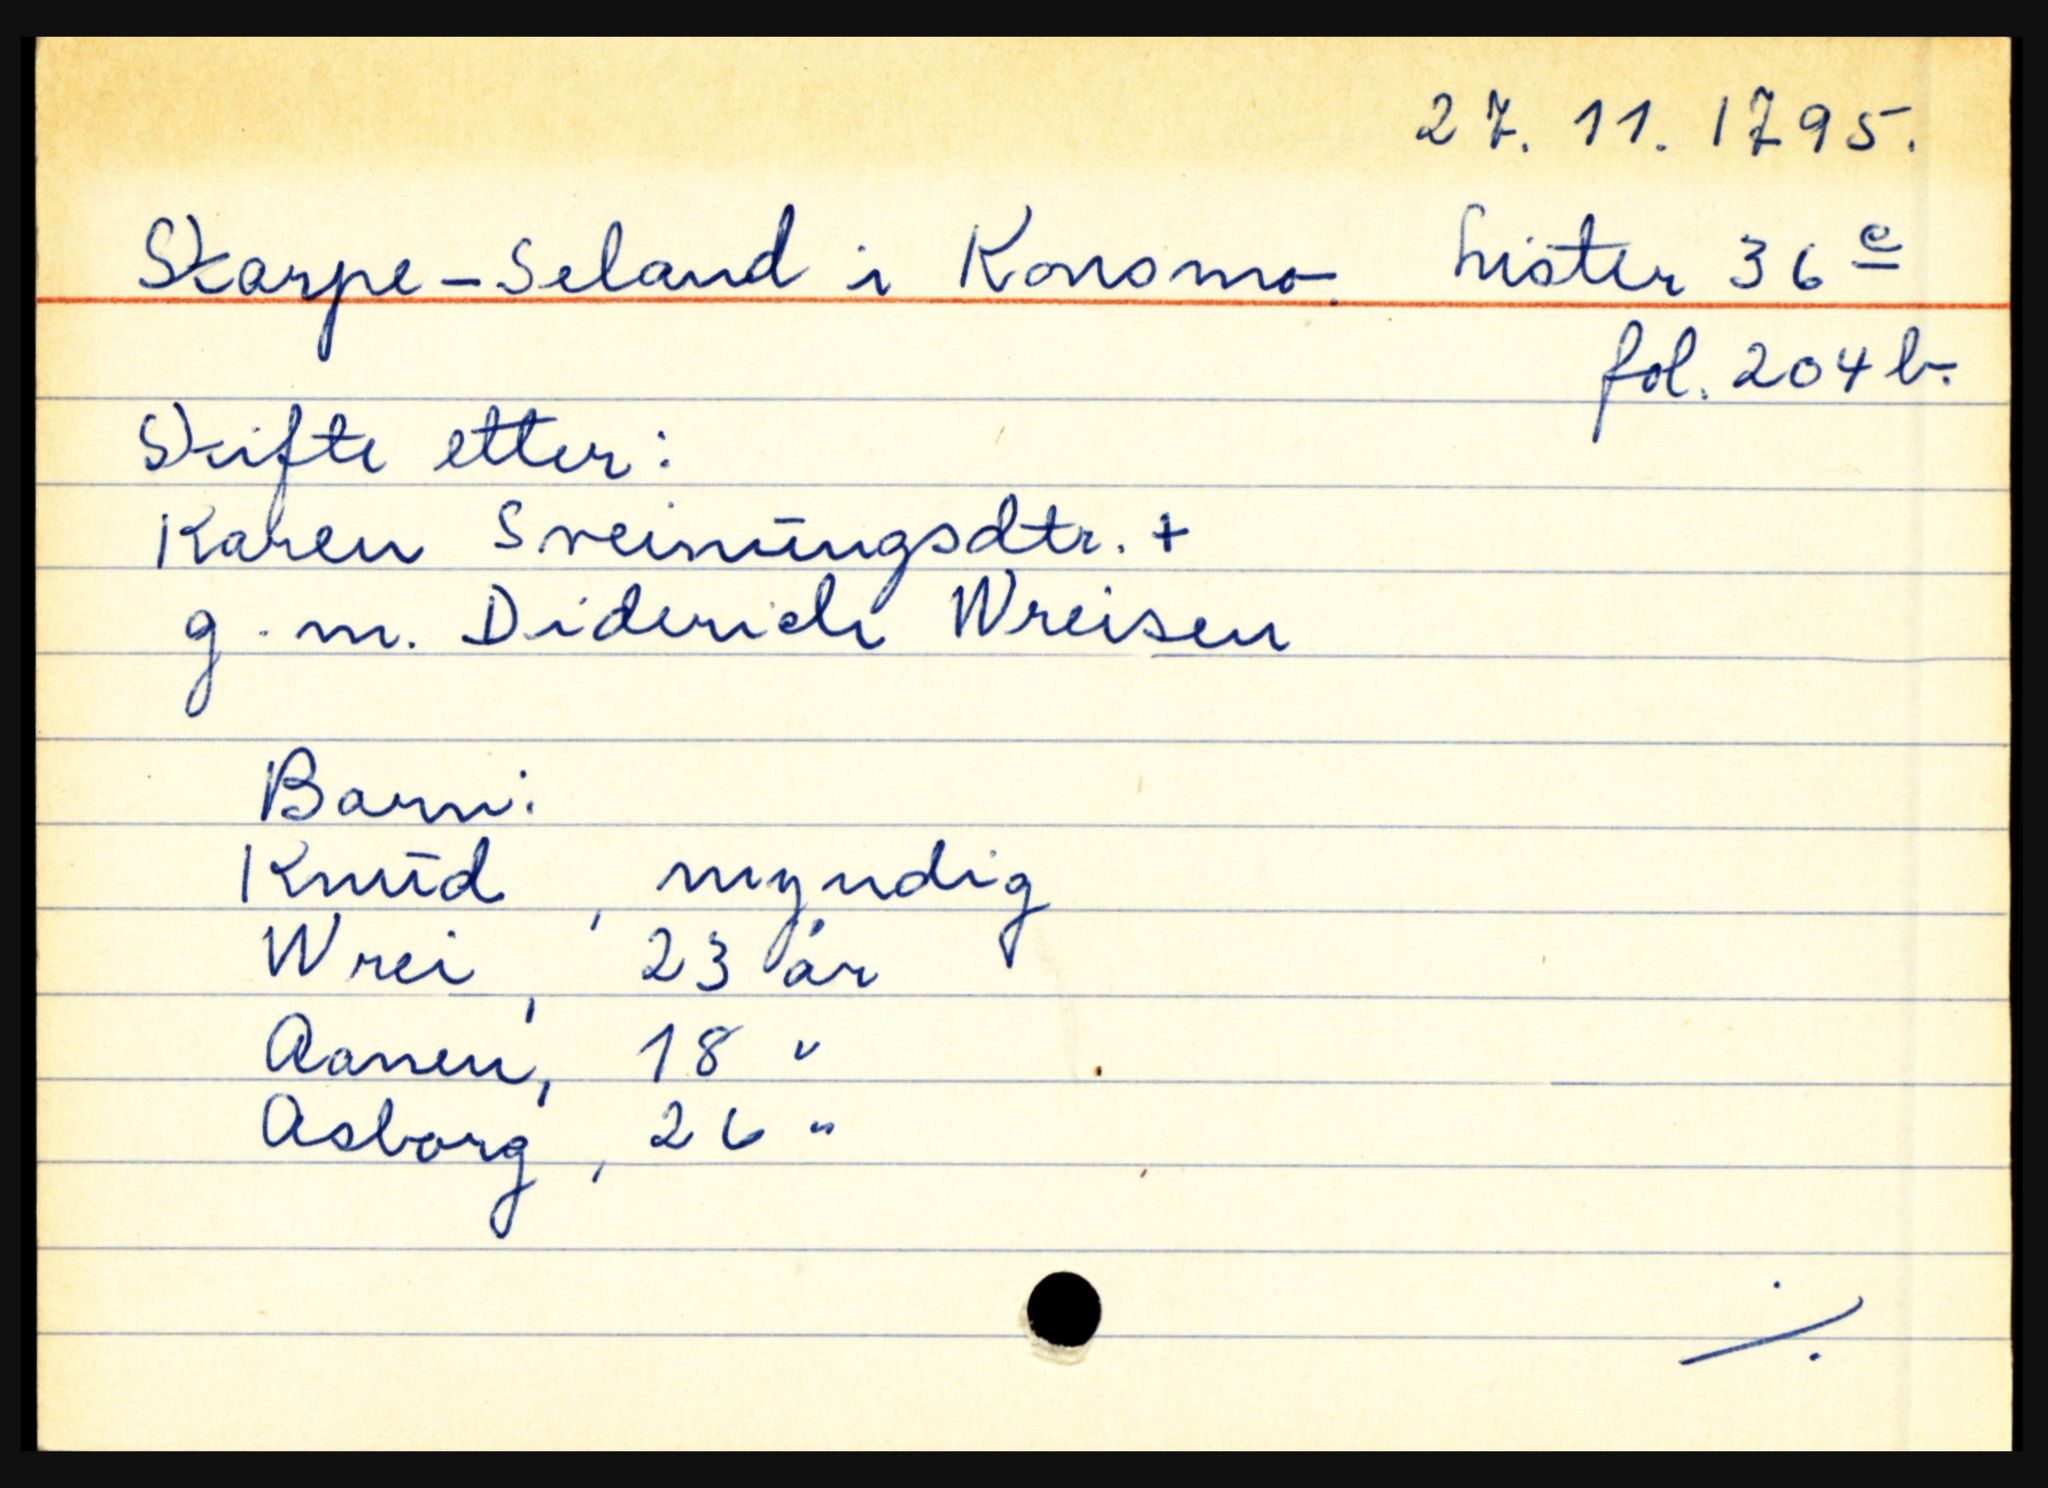 27. 11. 1795.
Skarpe-Seland i Konsmo. Lister 36 c
fol. 204 b.
Skifte etter:
Karen Sveinūngsdtr. +
g. m. Diderich Wreisen
Barn:
Knūd, myndig
Wrei, 23 år
Aanen, 18 "
Asborg, 26 "
./.